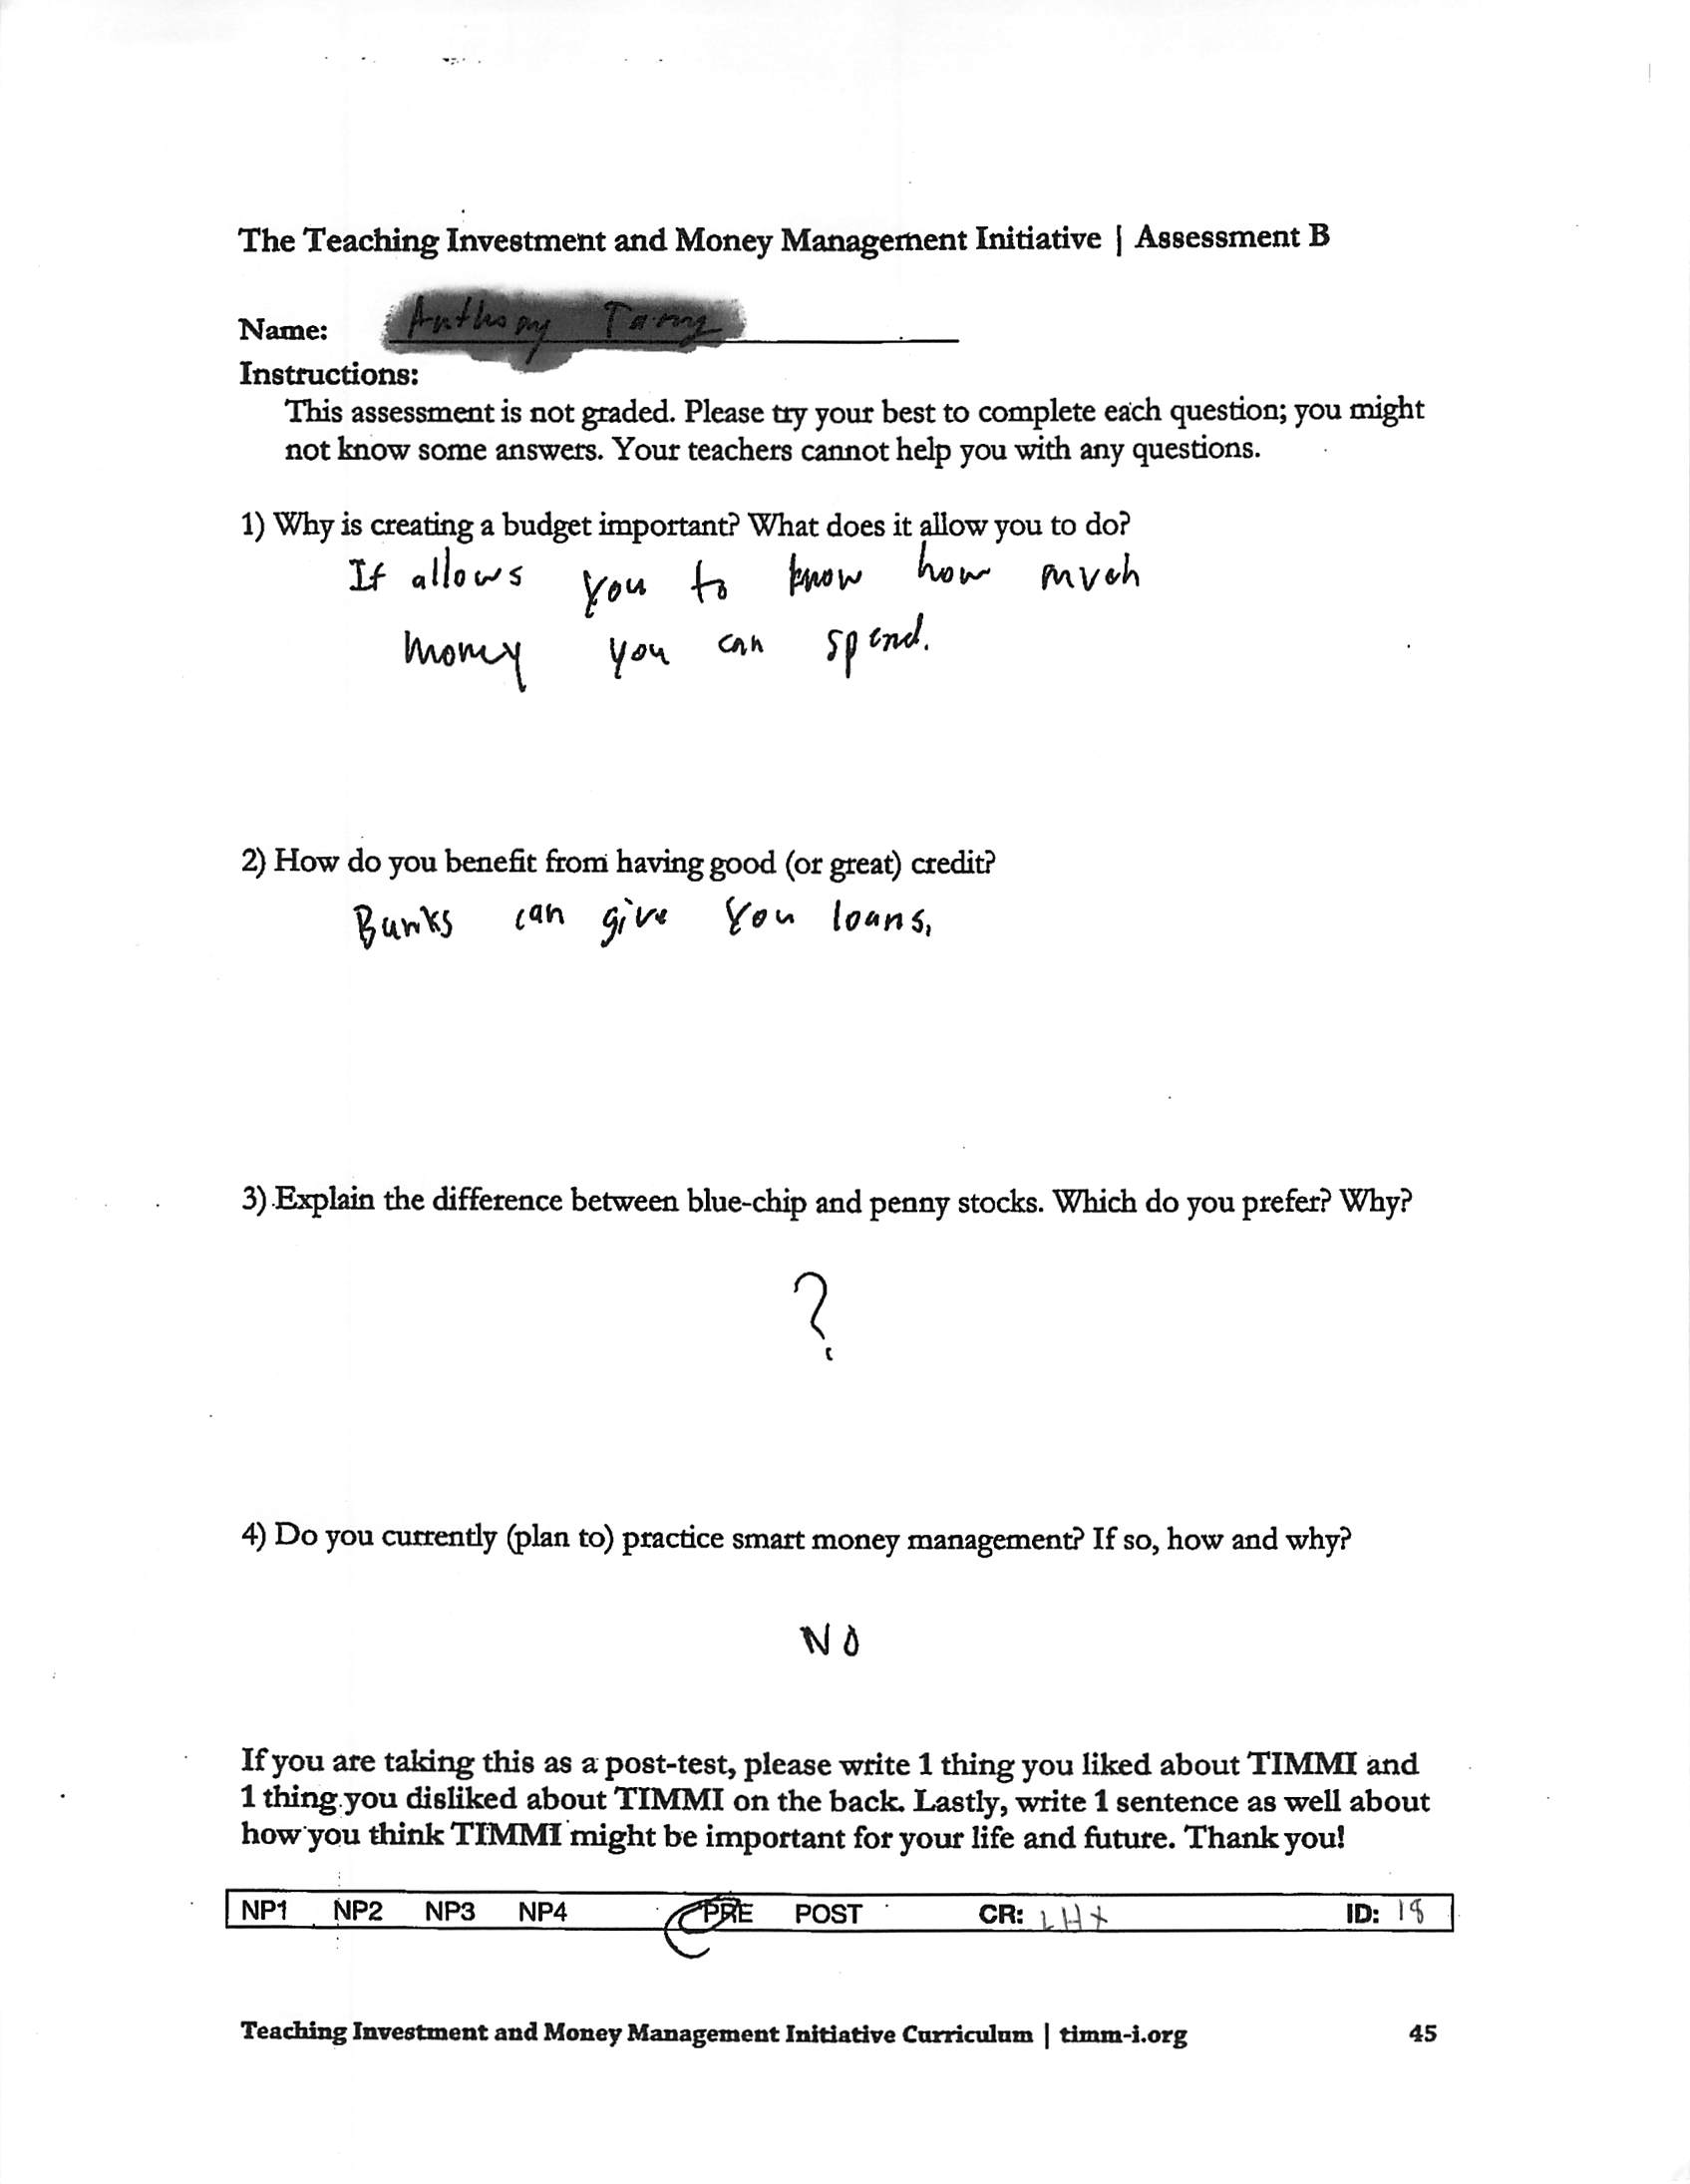 The Teaching Investment and Money Management Initiative | Assessment B
Name:
Instructions:
This assessment is not graded. Please try your best to complete each question; you might
not know some answers. Your teachers cannot help you with any questions.
1) Why is creating a budget important? What does it allow you to do?
It allows you to know how much
money you can spend.
2) How do you benefit from having good (or great) credit?
Banks can give you loans,
3) Explain the difference between blue-chip and penny stocks. Which do you prefer? Why?
?
4) Do you currently (plan to) practice smart money management? If so, how and why?
NO
If you are taking this as a post-test, please write 1 thing you liked about TIMMI and
1 thing you disliked about TIMMI on the back. Lastly, write 1 sentence as well about
how you think TIMMI might be important for your life and future. Thank you!
NP1 NP2 NP3 NP4 PRE POST CR: ID: 18
Teaching Investment and Money Management Initiative Curriculum | timm-i.org 45